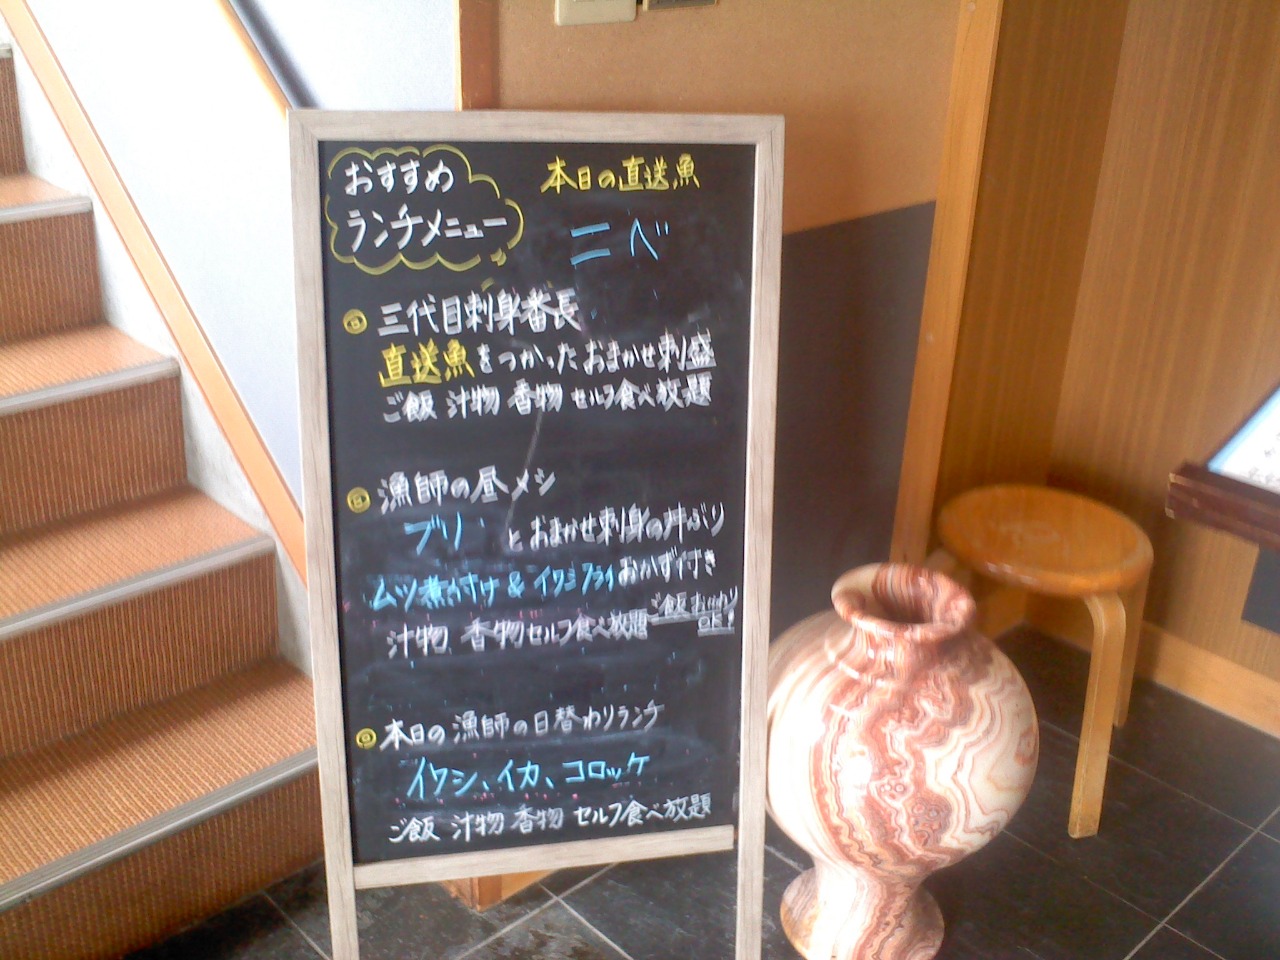 おすすめ
ランチメニュー
本日の直送魚
ニベ
◎三代目刺身番長
直送魚をつかったおまかせ刺し盛
ご飯 汁物 香物 セルフ食べ放題
◎漁師の昼メシ
ブリ とおまかせ刺身の丼ぶり
ムツ煮付け&イワシフライおかず付き
汁物 香物セルフ食べ放題
ご飯おかわり
OK!
◎本日の漁師の日替わりランチ
イワシ、イカ、コロッケ
ご飯 汁物 香物 セルフ食べ放題